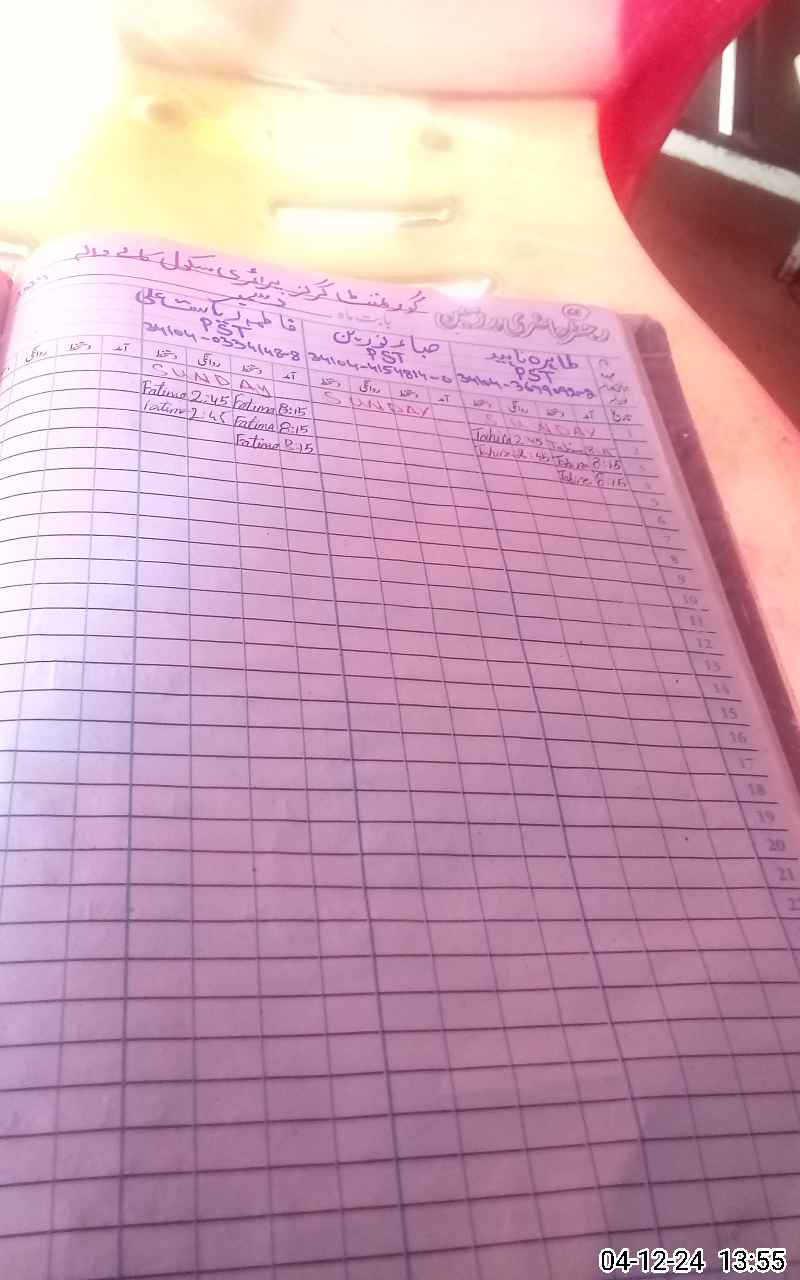 گورنمنٹ گرلز پرائمری سکول کالے والہ
رجسٹر حاضری مدرسین بابت ماہ دسمبر
طاہرہ ناہید صباء زرین فاطمہ ریاست علی
PST PST PST
34104-4154814-0 34104-0334148-8
تاریخ آمد دستخط روانگی دستخط آمد دستخط روانگی دستخط آمد دستخط روانگی دستخط آمد دستخط روانگی
1 SUNDAY SUNDAY SUNDAY
2 Tahira 2:45 Fatima 8:15 Fatima 2:45
3 Tahira 8:15 Tahira 2:45 Fatima 8:15 Fatima 2:45
4 Tahira 8:15 Fatima 8:15
5
6
7
8
9
10
11
12
13
14
15
16
17
18
19
20
21
04-12-24 13:55